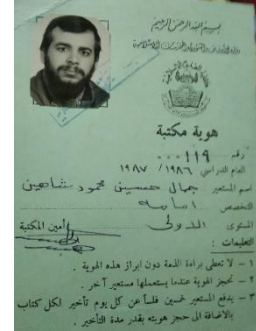 بسم الله الرحمن الرحيم
هوية مكتبة
رقم ٠٠٠١١٩
العام الدراسي ١٩٨٦ / ١٩٨٧
اسم المستعير جمال حسين محمود شاهين
التخصص
المستوى
أمين المكتبة
التعليمات :
١ – لا تعطى براءة الذمة دون ابراز هذه الهوية .
٢ – تحجز الهوية عندما يستعملها مستعير آخر .
٣ – يدفع المستعير خمسين فلساً عن كل يوم تأخير لكل كتاب
بالاضافة الى حجز هويته بقدر مدة التأخير .